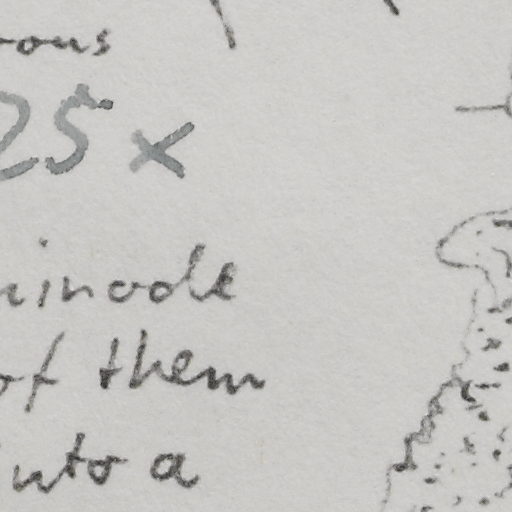 rous
25 x
inode
of them
into a